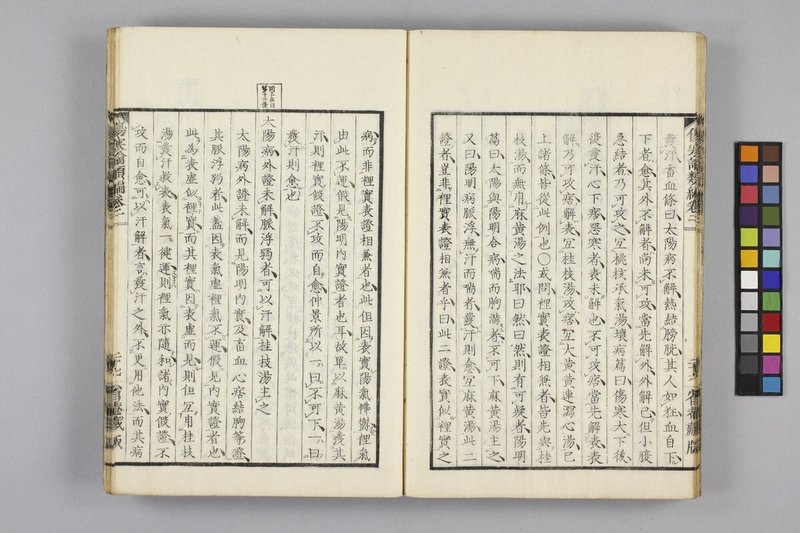 發汗畜血條曰太陽病不解熱結膀胱其人如狂血自下
下者愈其外不解者尚未可攻當先解外外解已但小腹
急結者乃可攻之宜桃核承氣湯壞病篇曰傷寒大下後
復發汗心下痞惡寒者表未解也不可攻痞當先解表表
解乃可攻痞解表宜桂枝湯攻痞宜大黃黃連瀉心湯已
上諸條皆從此例也〇或問裡實表證相兼者皆先與桂
枝湯而無用麻黃湯之法耶曰然曰然則有可疑者陽明
篇曰太陽與陽明合病喘而胸滿者不可下麻黃湯主之
又曰陽明病脈浮無汗而喘者發汗則愈宜麻黃湯此二
證者豈非裡實表證相兼者乎曰此二證表實似裡實之
病而非裡實表證相兼者也此但因表實陽氣怫鬱裡氣
由此不運假見陽明內實證者也耳故單以麻黃湯發其
汗則裡實假證不攻而自愈仲景所以一曰不可下一曰
發汗則愈也
太陽病外證未解脈浮弱者可以汗解桂枝湯主之
太陽病外證未解而見陽明內實及畜血心痞結胸等證
其脈浮弱者此蓋因表氣虛裡氣不運假見內實證者也
此為表虛似裡實而其裡實因表虛而見則但宜用桂枝
湯發汗救表表氣一健運則裡氣亦隨和諸內實假證不
攻而自愈可以汗解者言發汗之外不更用他法而其病